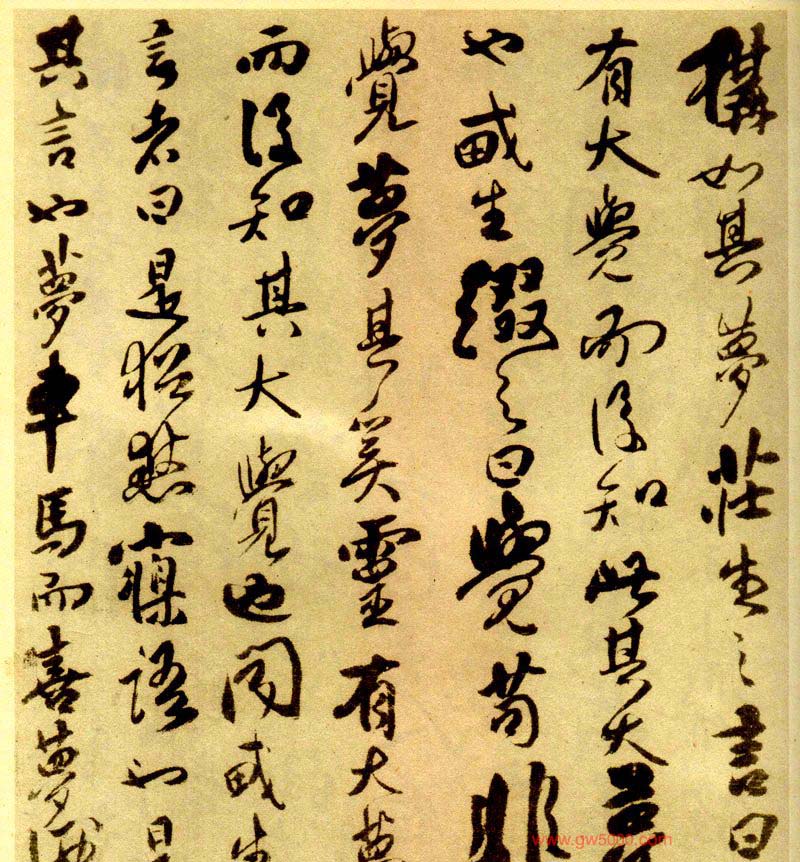 如其夢莊生之言曰
有大覺而後知此其大夢
也生綴之曰覺苟非
覺夢其奚靈有大夢
而後知其大覺也生
言者曰是猶寱語也是
其言也夢車馬而喜夢
www.gw5000.com